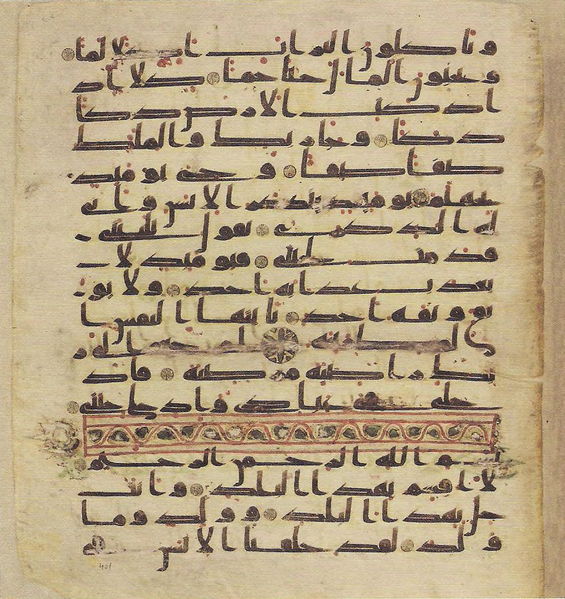 وتاكلون التراث اكلا لما
وتحبون المال حبا جما كلا اذ
ا دكت الارض دكا
دكا وجا ربك والملك
صفا صفا وجيء يومئذ
بجهنم يومئذ يتذكر الانسن وانى
له الذكرى يقول يليتني
قدمت لحياتي فيومئذ لا
يعذب عذابه احد ولا يو
ثق وثاقه احد يايتها النفس ا
لمطمئنة ارجعي الى ر
بك راضية مرضية فاد
خلي في عبدي وادخلي جنتي
بسم الله الرحمن الرحيم
لا اقسم بهذا البلد وانت
حل بهذا البلد ووالد وما
ولد لقد خلقنا الانسن في